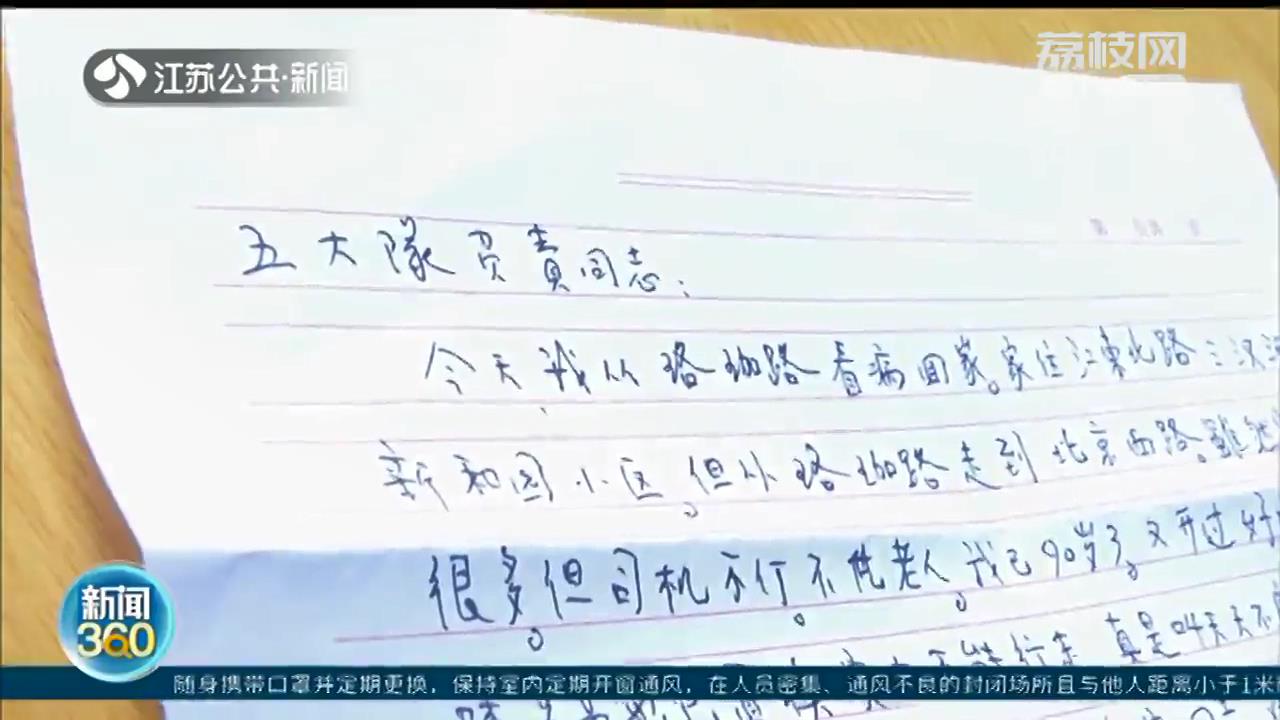 江苏公共·新闻
荔枝网
五大队负责同志:
今天我从珞珈路看病回家。家住江东北路三汊河
新和园小区。但从珞珈路走到北京西路。雖然
很多。但司机不行。不忱老人。我已90岁了。又开过好
能行走 真是叫天天不
新闻
360
随身携带口罩并定期更换，保持室内定期开窗通风，在人员密集、通风不良的封闭场所且与他人距离小于1米